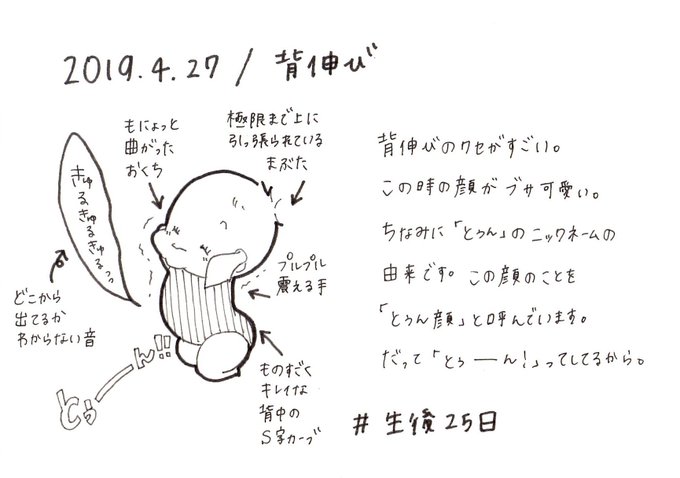 2019.4.27 / 背伸び
もにょっと
曲がった
おくち
極限まで上に
引っ張られている
まぶた
きゅるきゅるきゅるっっ
どこから
出てるか
わからない音
プルプル
震える手
とぅーん!!
ものすごく
キレイな
背中の
S字カーブ
背伸びのクセがすごい。
この時の顔がブサ可愛い。
ちなみに「とぅん」のニックネームの
由来です。この顔のことを
「とぅん顔」と呼んでいます。
だって「とぅーん!」ってしてるから。
#生後25日